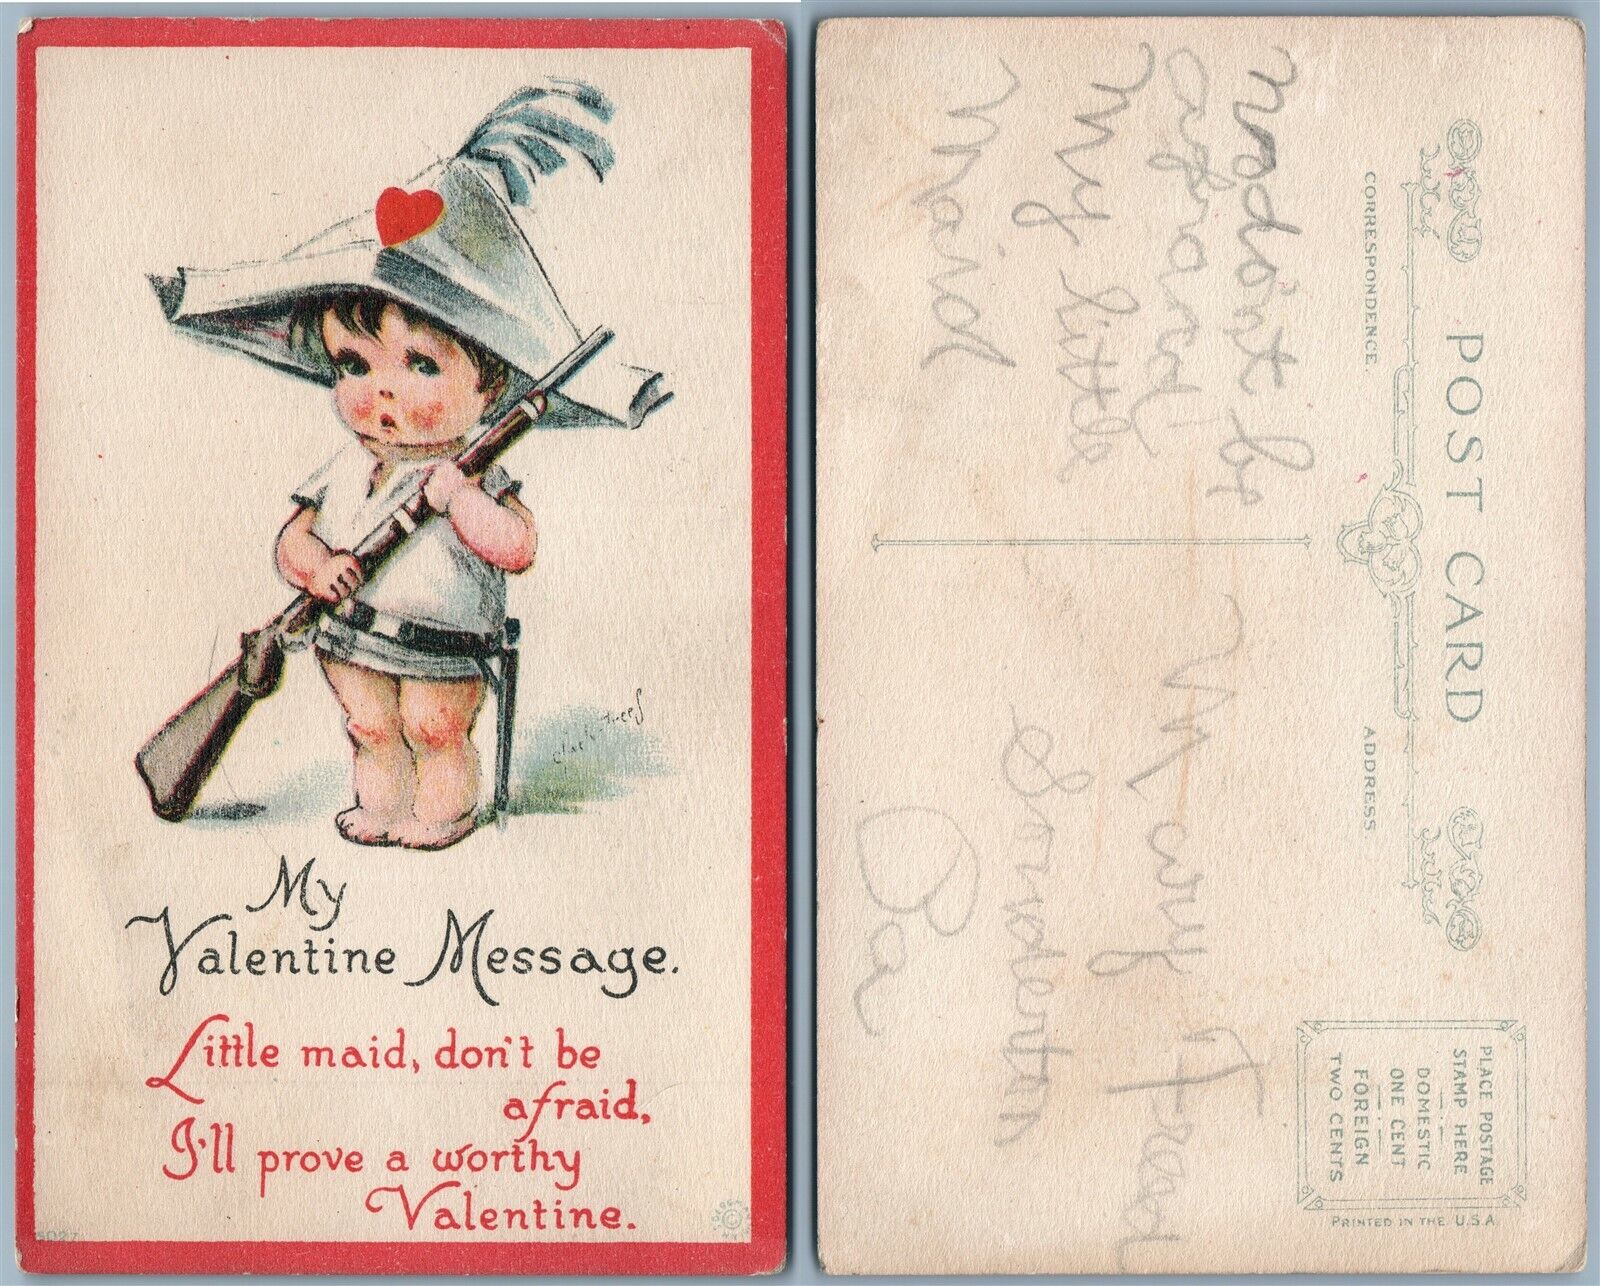 My
Valentine Message.
Little maid, don't be
afraid,
I'll prove a worthy
Valentine.
5027
POST CARD
CORRESPONDENCE.
ADDRESS
PLACE POSTAGE
STAMP HERE
DOMESTIC
ONE CENT
FOREIGN
TWO CENTS
PRINTED IN THE U.S.A.
dont by
afraid
My little
Maid
Mary Fred
Pa